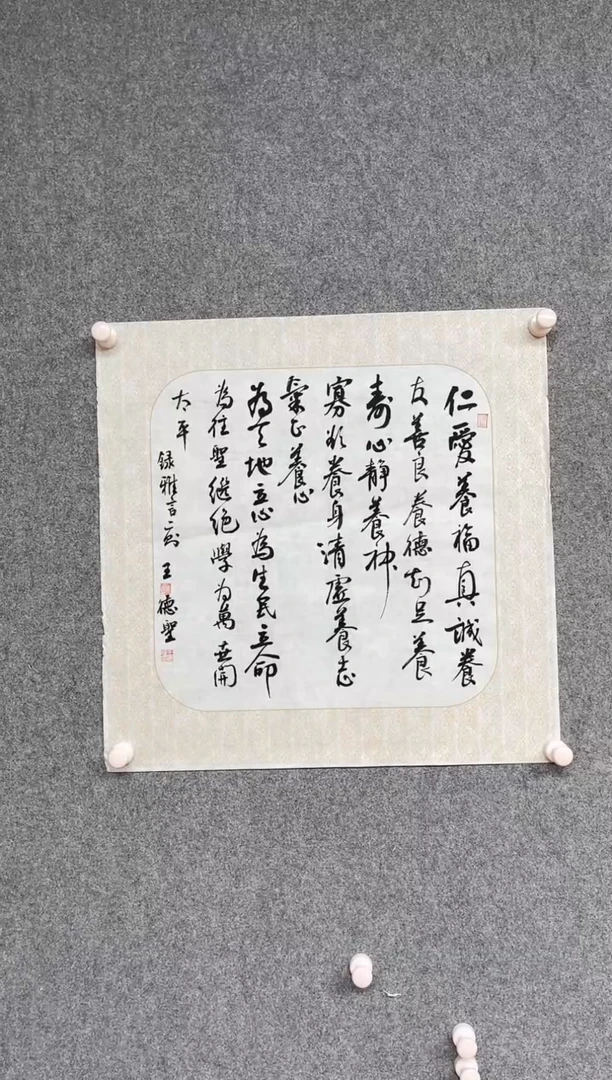 仁愛養福真誠養
友善良養德知足養
壽心靜養神
寡欲養身清虛養志
氣正養心
為天地立心為生民立命
為往聖繼絕學為萬世開
太平
録雅言二則 王德聖